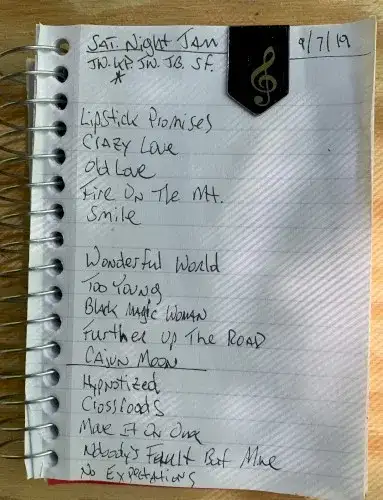 SAT. Night JAM
9/7/19
JW. KP. JW. JB. SF.
*
Lipstick Promises
CRAZY Love
Old Love
Fire On The Mt.
Smile
Wonderful World
Too Young
Black Magic Woman
Further Up The ROAD
CAJUN MOON
Hypnotized
Crossroads
Move It On Over
Nobody's Fault But Mine
No Expectations